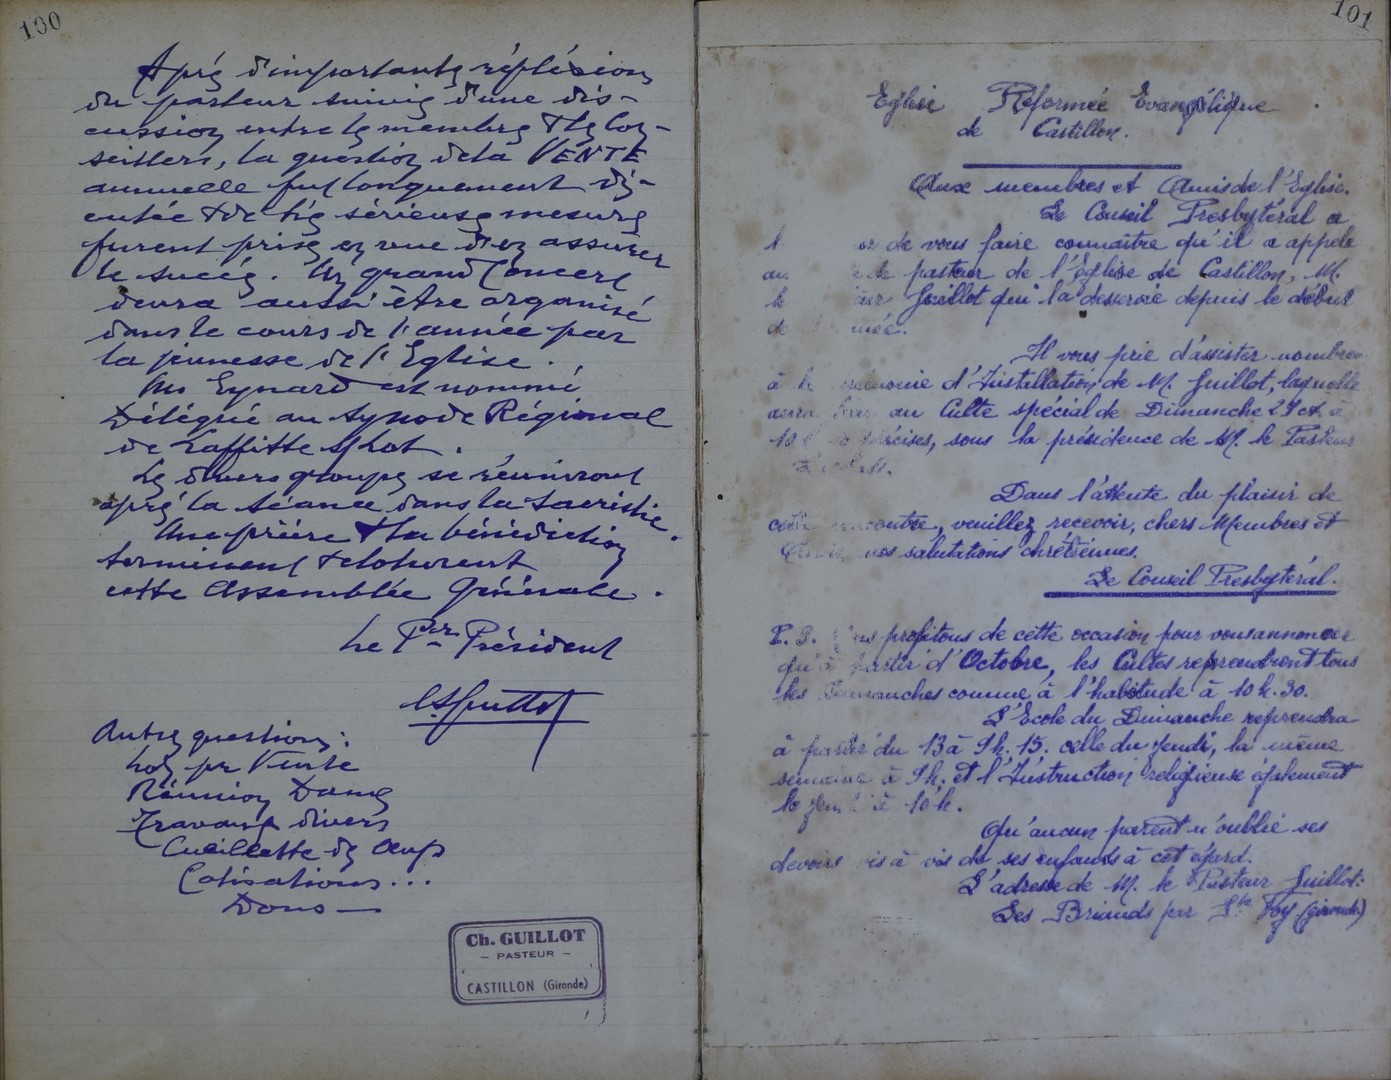 100
Après d'importantes réfléxions
du pasteur suivies d'une dis-
cussion entre les membres & les Con-
seillers, la question de la VENTE
annuelle fut longuement dis-
cutée & de très sérieuses mesures
furent prises en vue d'en assurer
le succès. Un grand Concert
devra aussi être organisé
dans le cours de l'année par
la jeunesse de l'Eglise.
Mr Eynard est nommé
Délégué au Synode Régional
de Laffitte s/Lot.
Les divers groupes se réuniront
après la séance dans la Sacristie.
Une prière & la bénédiction
terminent & cloturent
cette Assemblée Générale.
Le Pr Président
Ch Guillot
Autres questions:
Lots pr Vente
Réunion Dames
Travaux divers
Cueillette des Oeufs
Cotisations...
Dons —
Ch. GUILLOT
– PASTEUR –
CASTILLON (Gironde)
101
Eglise Réformée Evangélique
de Castillon.
Aux membres et Amis de l'Eglise.
Le Conseil Presbytéral a
de vous faire connaître qu'il a appelé
pasteur de l'Eglise de Castillon, M.
Guillot qui l'a desservie depuis le début
de
Il vous prie d'assister nombreux
à la d'Installation de M. Guillot, laquelle
aura lieu au Culte spécial de Dimanche 29 ct à
10 h précises, sous la présidence de M. le Pasteur
Dans l'attente du plaisir de
cette rencontre, veuillez recevoir, chers Membres et
Amis, nos salutations chrétiennes.
Le Conseil Presbytéral.
P.S. Nous profitons de cette occasion pour vous annoncer
qu'à partir d'Octobre, les Cultes reprendront tous
les Dimanches comme à l'habitude à 10 h. 30.
L'Ecole du Dimanche reprendra
à partir du 13 à 9h. 15. celle du Jeudi, la même
semaine à 9h. et l'Instruction religieuse également
le Jeudi à 10 h.
Qu'aucun parent n'oublie ses
devoirs vis à vis de ses enfants à cet égard.
L'adresse de M. le Pasteur Guillot:
Les Briands par Ste Foy (Gironde)